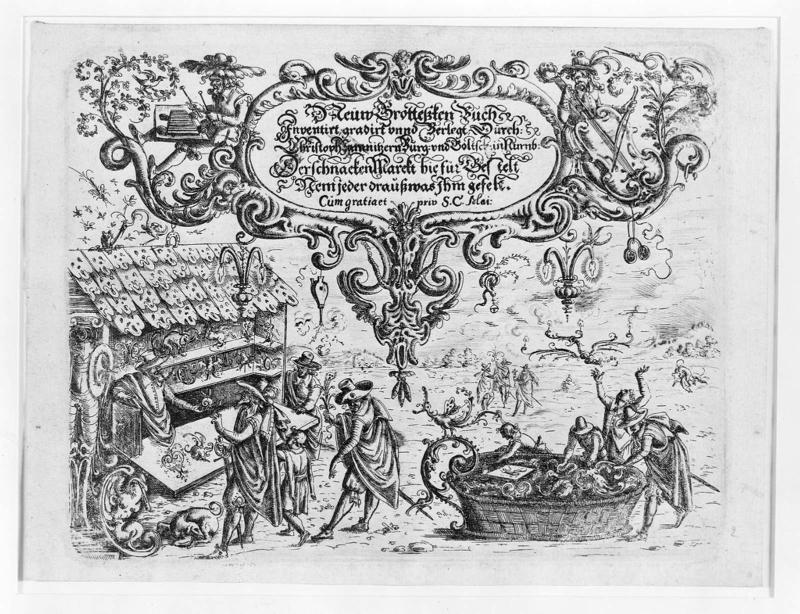 Neuw Grottessken Buch
Inventirt gradirt vnnd Verlegt Durch:
Christoph Jamnitzern Burg: vnd Goltsch: in Nürnb:
Der schnacken Marckt hie für
Nem jeder drauß was Ihm gefelt.
Cùm gratia et priv S. C.